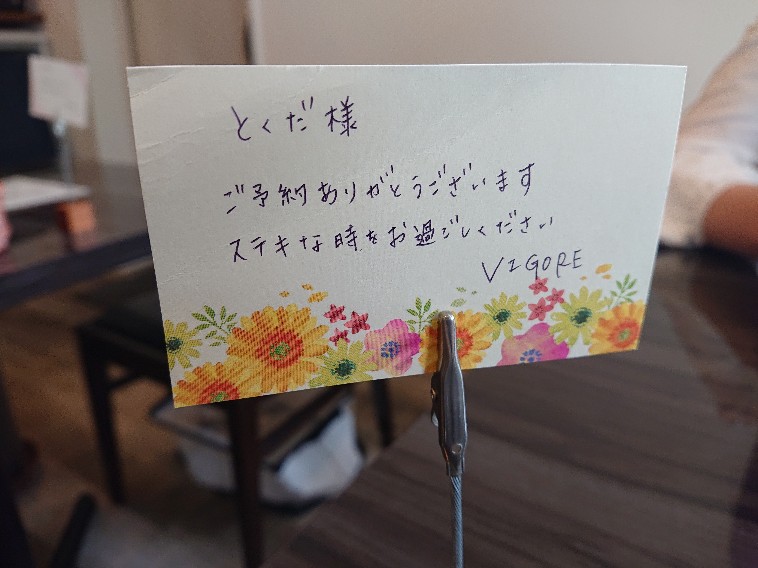 とくだ様
ご予約ありがとうございます
ステキな時をお過ごしください
VIGORE